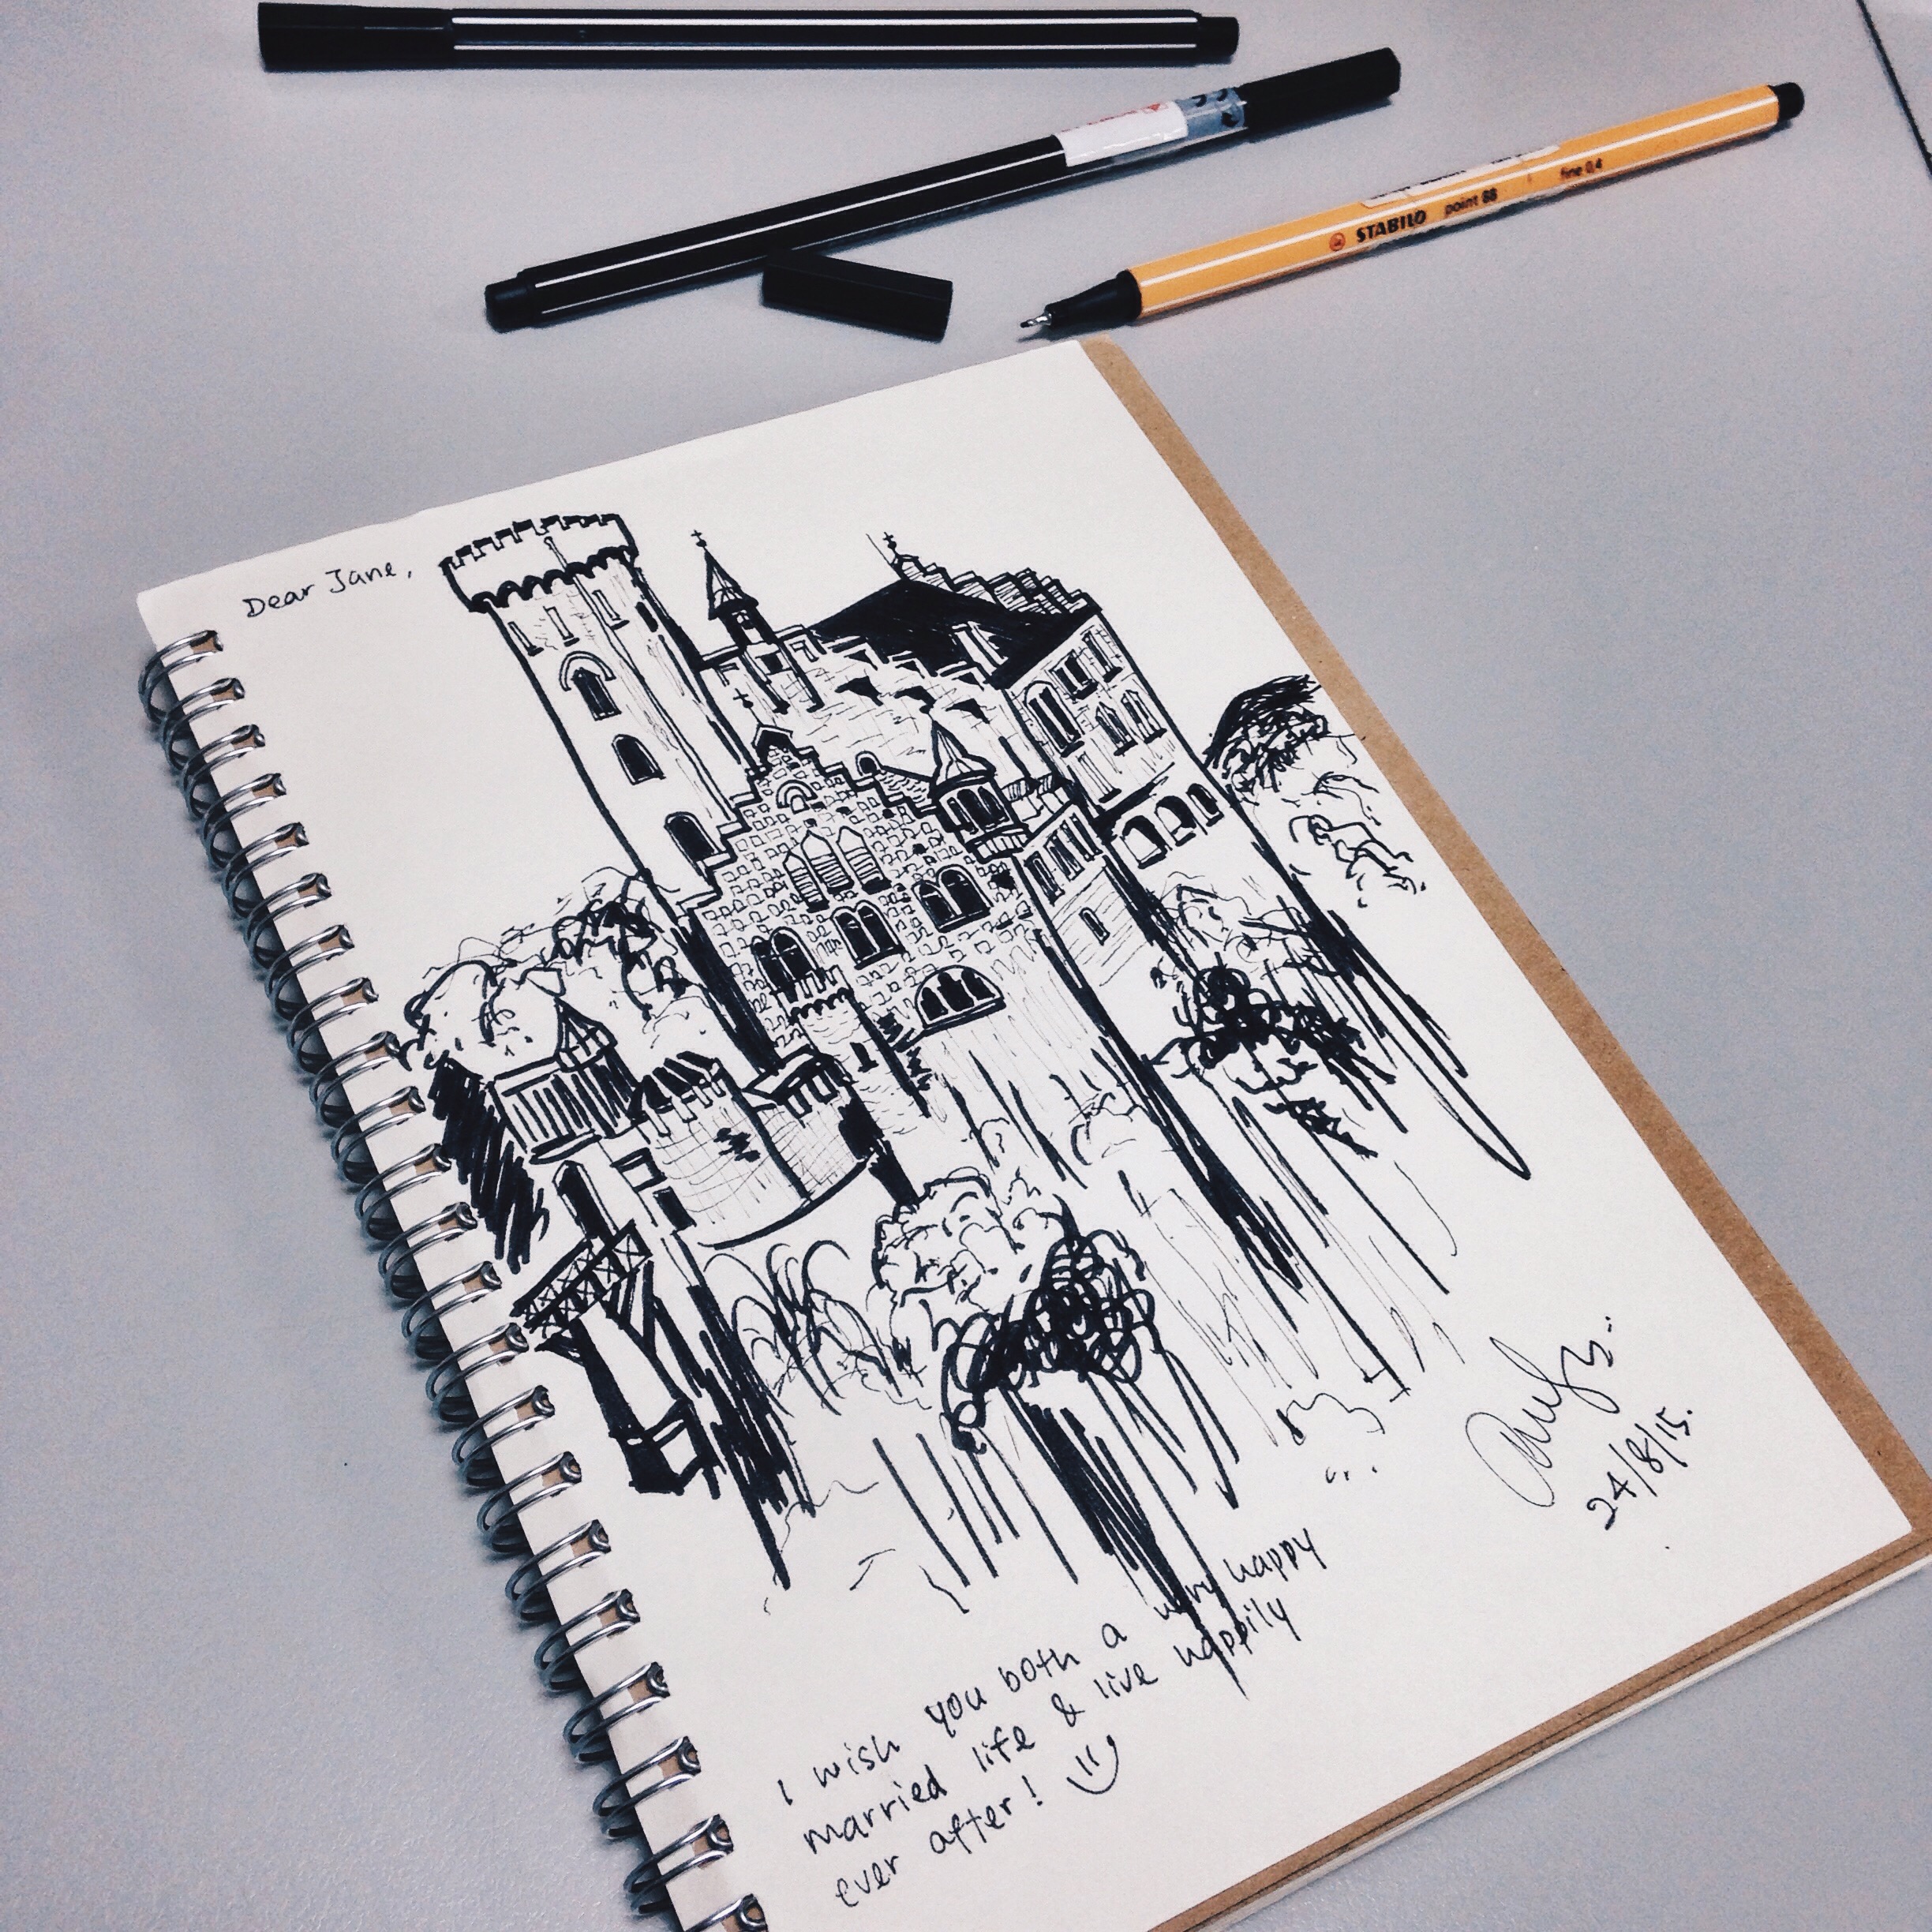 STABILO point 88 fine 0.4
Dear Jane,
24/8/15.
I wish you both a very happy
married life & live happily
ever after!